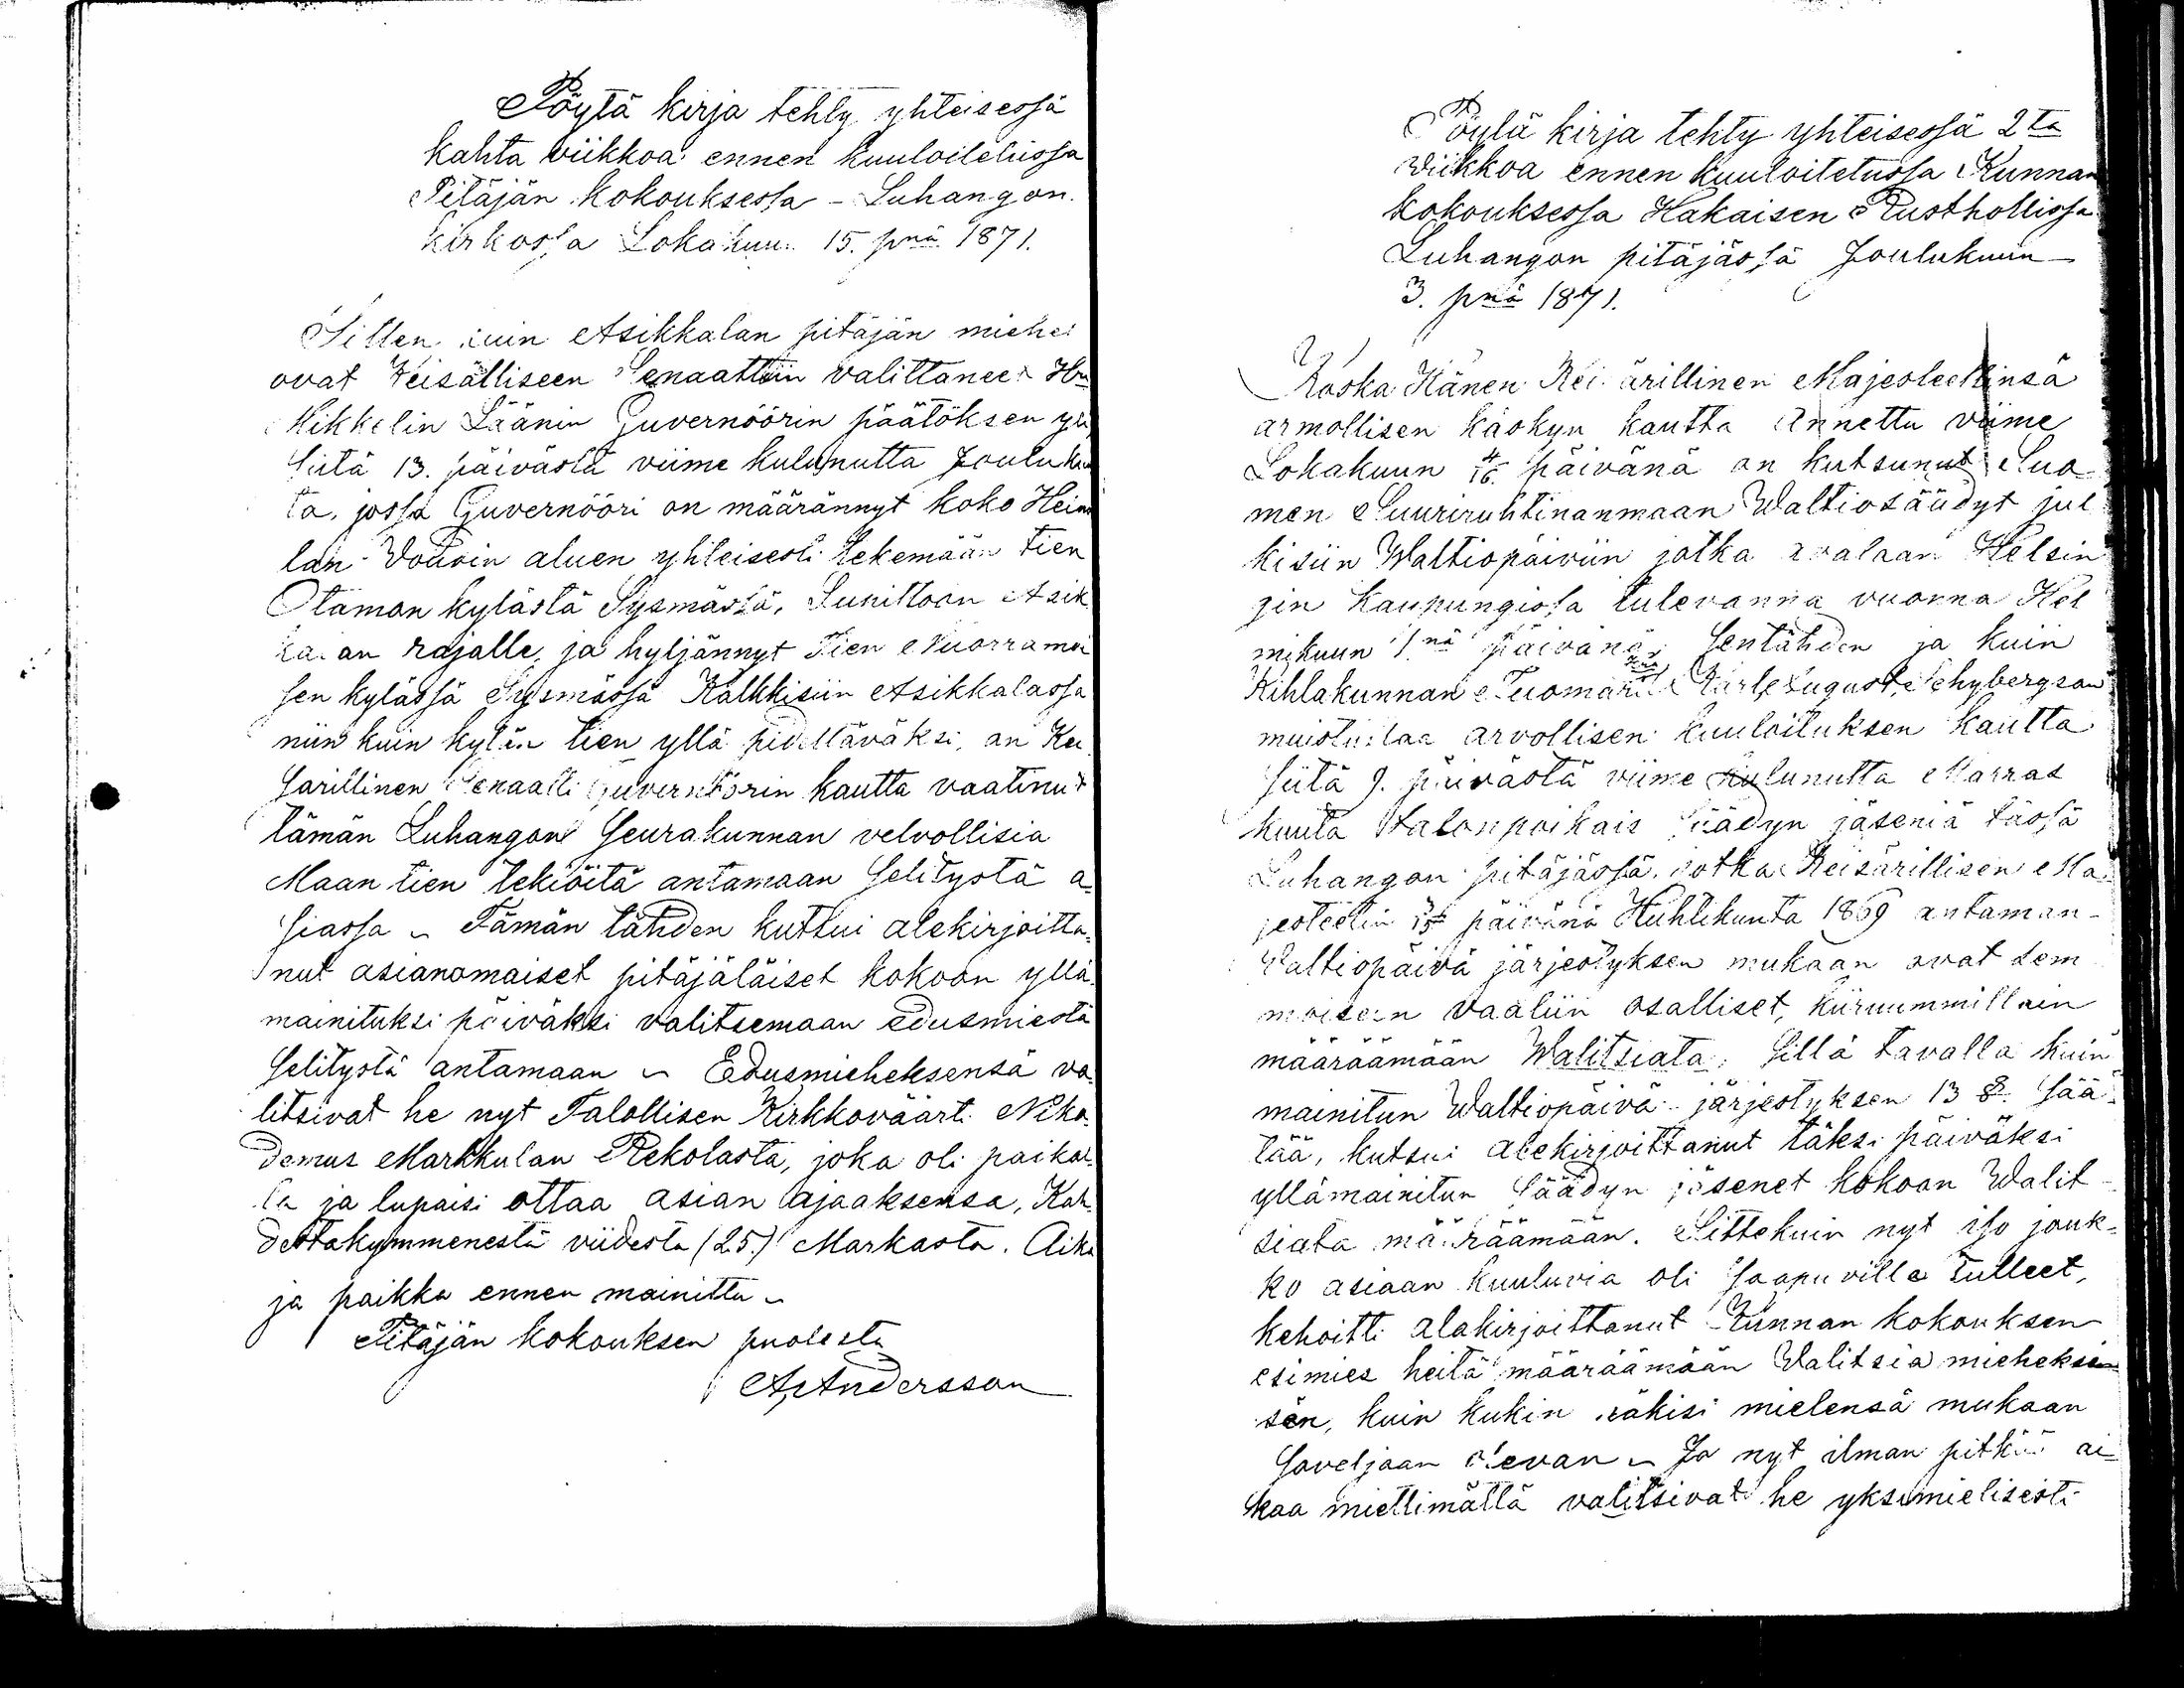 Pöytä kirja tehty yhteisessä
kahta viikkoa ennen kuuloitetussa
Pitäjän kokouksessa - Luhangon
kirkossa Lokakuun 15. pnä 1871.
Sitten kuin Asikkalan pitäjän miehet
ovat Keisälliseen Senaattiin valittaneet
Mikkelin Läänin Guvernöörin päätöksen yli
siitä 13. päivästä viime kulunutta Jouluku
ta, jossa Guvernööri on määrännyt koko Heino
lan Vouvin aluen yhteisesti tekemään tien
Otamon kylästä Sysmässä, Sunittoon Asik
kalan rajalle, ja hyljännyt Tien Nuorramoi
sen kylässä Sysmässä Kalkkisiin Asikkalassa
niin kuin kylän tien yllä pidettäväksi, on Kei
sarillinen Senaatti Guvernöörin kautta vaatinut
tämän Luhangon Seurakunnan velvollisia
Maan tien tekiöitä antamaan Selitystä a-
siassa ~ Tämän tähden kuttui alekirjoitta-
nut asianomaiset pitäjäläiset kokoon yllä
mainituksi päiväksi valitsemaan edusmiestä
Selitystä antamaan ~ Edusmieheksensä va-
litsivat he nyt Talollisen Kirkkoväärti Niko-
demus Markkulan Rekolasta, joka oli paikal-
la ja lupaisi ottaa asian ajaaksensa, Kah-
destakymmenestä viidestä (25.) Markasta. Aika
ja paikka ennen mainittu ~
Pitäjän kokouksen puolesta
A Andersson
Pöytä kirja tehty yhteisessä 2ta
viikkoa ennen kuuloitetussa Kunnan
kokouksessa Hakaisen Rusthollissa
Luhangon pitäjässä Joulukuun
3. pnä 1871.
Koska Hänen Keisärillinen Majesteettinsä
armollisen käskyn kautta Annettu viime
Lokakuun 4/16. päivänä on kutsunut Suo-
men Suuriruhtinanmaan Waltiosäädyt jul
kisiin Waltiopäiviin jotka avalaan Helsin
gin Kaupungissa tulevanna vuonna Hel
mikuun 1.nä päivänä; Sentähden ja kuin
Kihlakunnan Tuomari Hra Karle August Schybergson
muistuttaa arvollisen kuuloituksen kautta
Siitä 9. päivästä viime kulunutta Marras
kuuta Talonpoikais Säädyn jäseniä tässä
Luhangon pitäjässä, jotka Keisärillisen Ma-
jesteetin päivänä Huhtikuuta 1869 antaman
Valtiopäivä järjestyksen mukaan ovat sem
moiseen vaaliin osalliset, kiiruummittain
määräämään Walitsiata, Sillä tavalla kuin
mainitun Waltiopäivä-järjestyksen 13 §. Sää-
tää, kutsui alekirjoittanut täksi päiväksi
yllämainitun Säädyn jäsenet kokoon Walit-
siata määräämään. Sittekuin nyt iso jouk-
ko asiaan kuuluvia oli Saapuville tulleet,
kehoitti alakirjoittanut Kunnan kokouksen
esimies heitä määräämään Walitsia mieheksen
sen, kuin kukin näkisi mielensä mukaan
Soveljaan olevan ~ Ja nyt ilman pitkää ai-
kaa miettimättä valitsivat he yksimielisesti